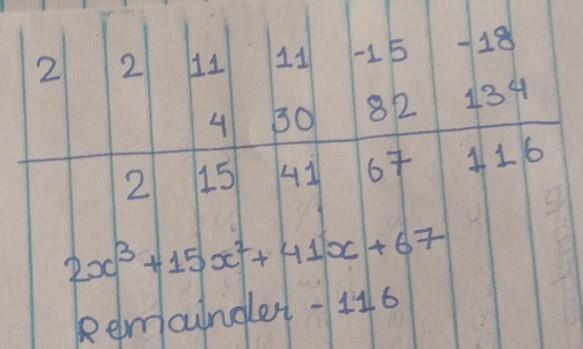 2 2 11 11 -15 -18
4 30 82 134
2 15 41 67 116
2x³ + 15x² + 41x + 67
Remainder - 116